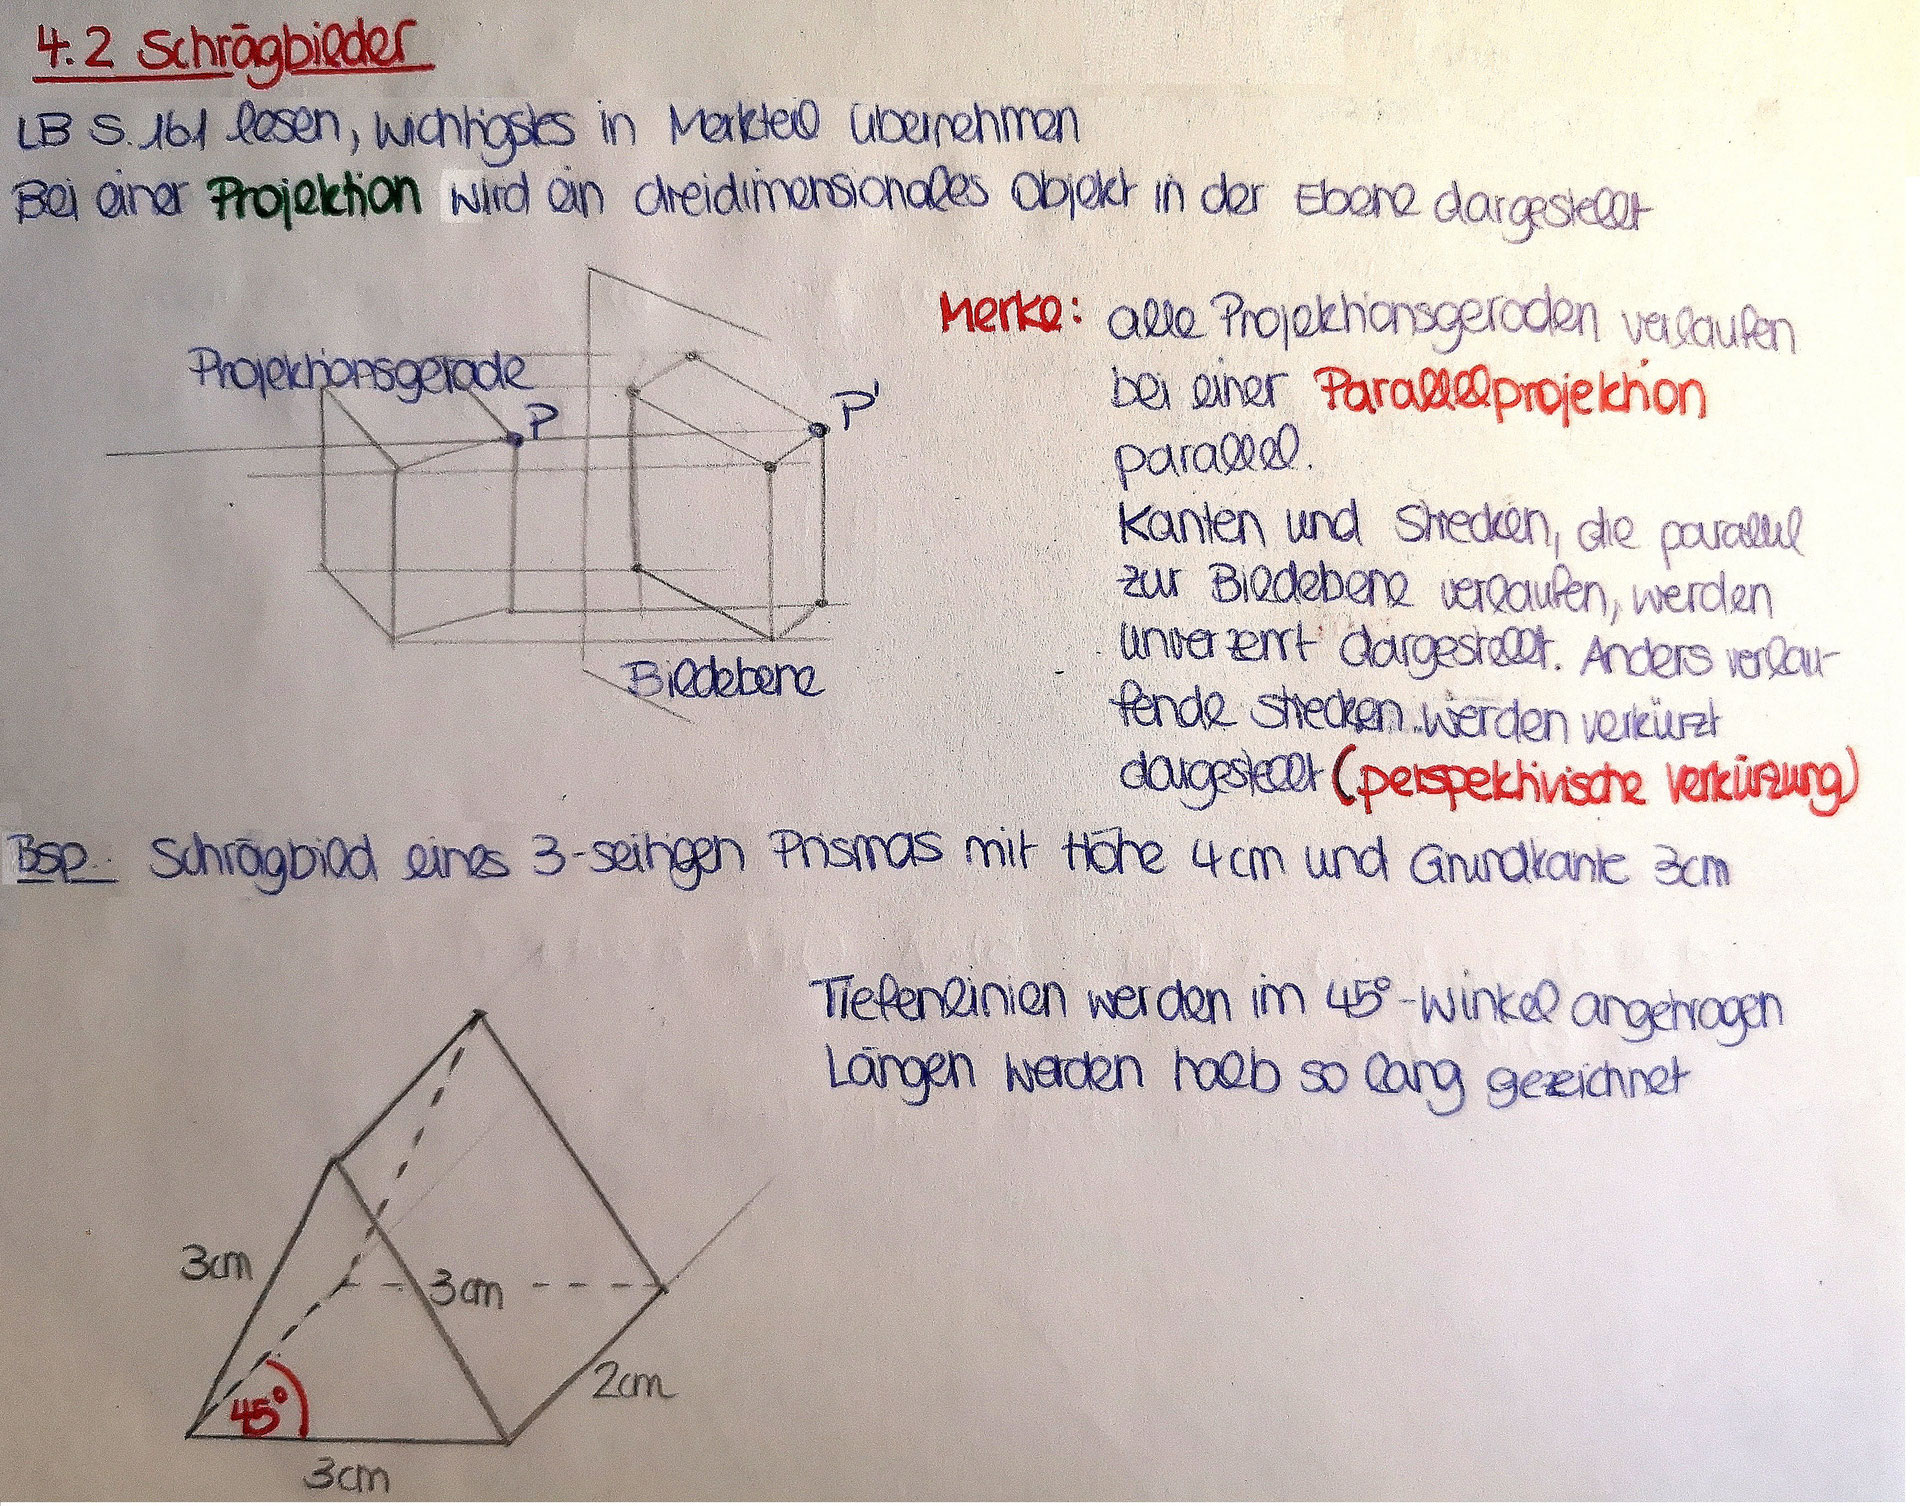 4.2 Schrägbilder
LB S. 161 lesen, wichtigstes in Merkteil übernehmen
Bei einer Projektion wird ein dreidimensionales Objekt in der Ebene dargestellt
Projektionsgerade
P
P'
Bildebene
Merke: alle Projektionsgeraden verlaufen
bei einer Parallelprojektion
parallel.
Kanten und Strecken, die parallel
zur Bildebene verlaufen, werden
unverzerrt dargestellt. Anders verlau-
fende Strecken werden verkürzt
dargestellt (perspektivische Verkürzung)
Bsp. Schrägbild eines 3-seitigen Prismas mit Höhe 4cm und Grundkante 3cm
Tiefenlinien werden im 45°-Winkel angetragen
Längen werden halb so lang gezeichnet
3cm
3cm
2cm
45°
3cm